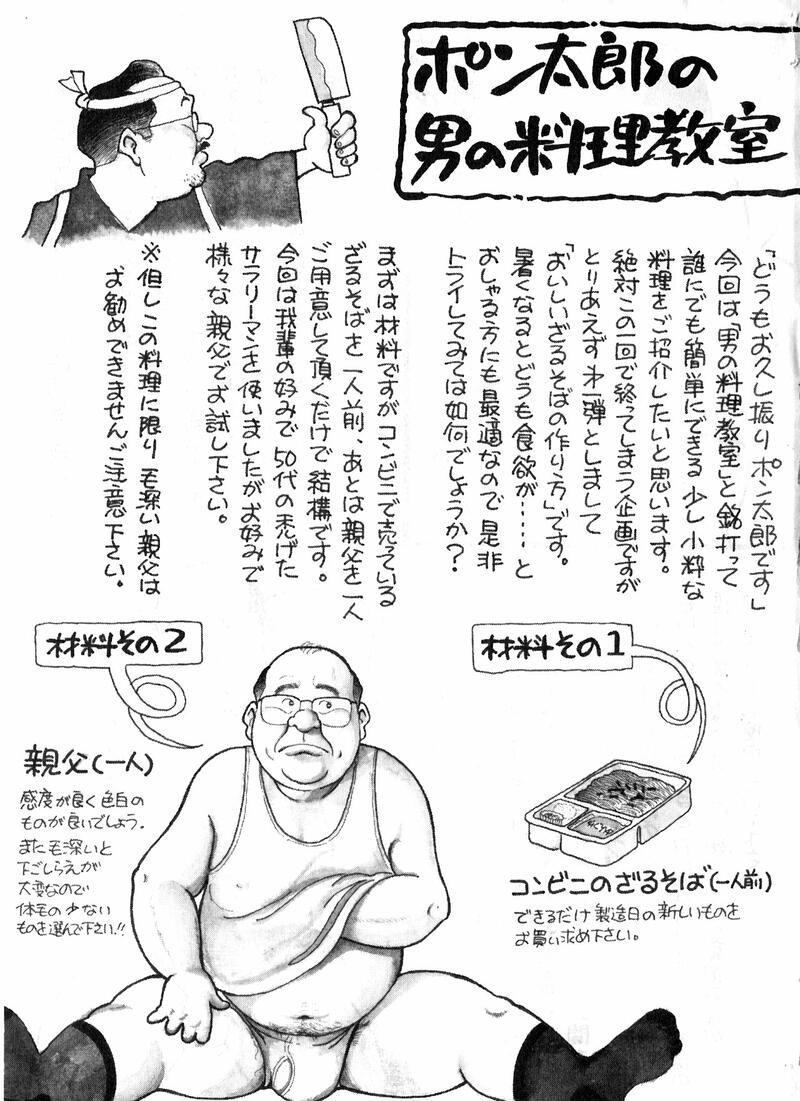 ポン太郎の
男の料理教室
「どうもお久し振りポン太郎です」
今回は「男の料理教室」と銘打って
誰にでも簡単にできる少し小粋な
料理をご紹介したいと思います。
絶対この一回で終ってしまう企画ですが
とりあえず才一弾としまして
「おいしいざるそばの作り方」です。
暑くなるとどうも食欲が……と
おしゃる方にも最適なので是非
トライしてみては如何でしょうか？
まずは材料ですがコンビニで売っている
ざるそばを一人前、あとは親父を一人
ご用意して頂くだけで結構です。
今回は我輩の好みで50代の禿げた
サラリーマンを使いましたがお好みで
様々な親父でお試し下さい。
※但しこの料理に限り毛深い親父は
お勧めできませんご注意下さい。
材料その1
コンビニのざるそば(一人前)
できるだけ製造日の新しいものを
お買い求め下さい。
材料その2
親父(一人)
感度が良く色白の
ものが良いでしょう.
また毛深いと
下ごしらえが
大変なので
体毛の少ない
ものを選んで下さい!!